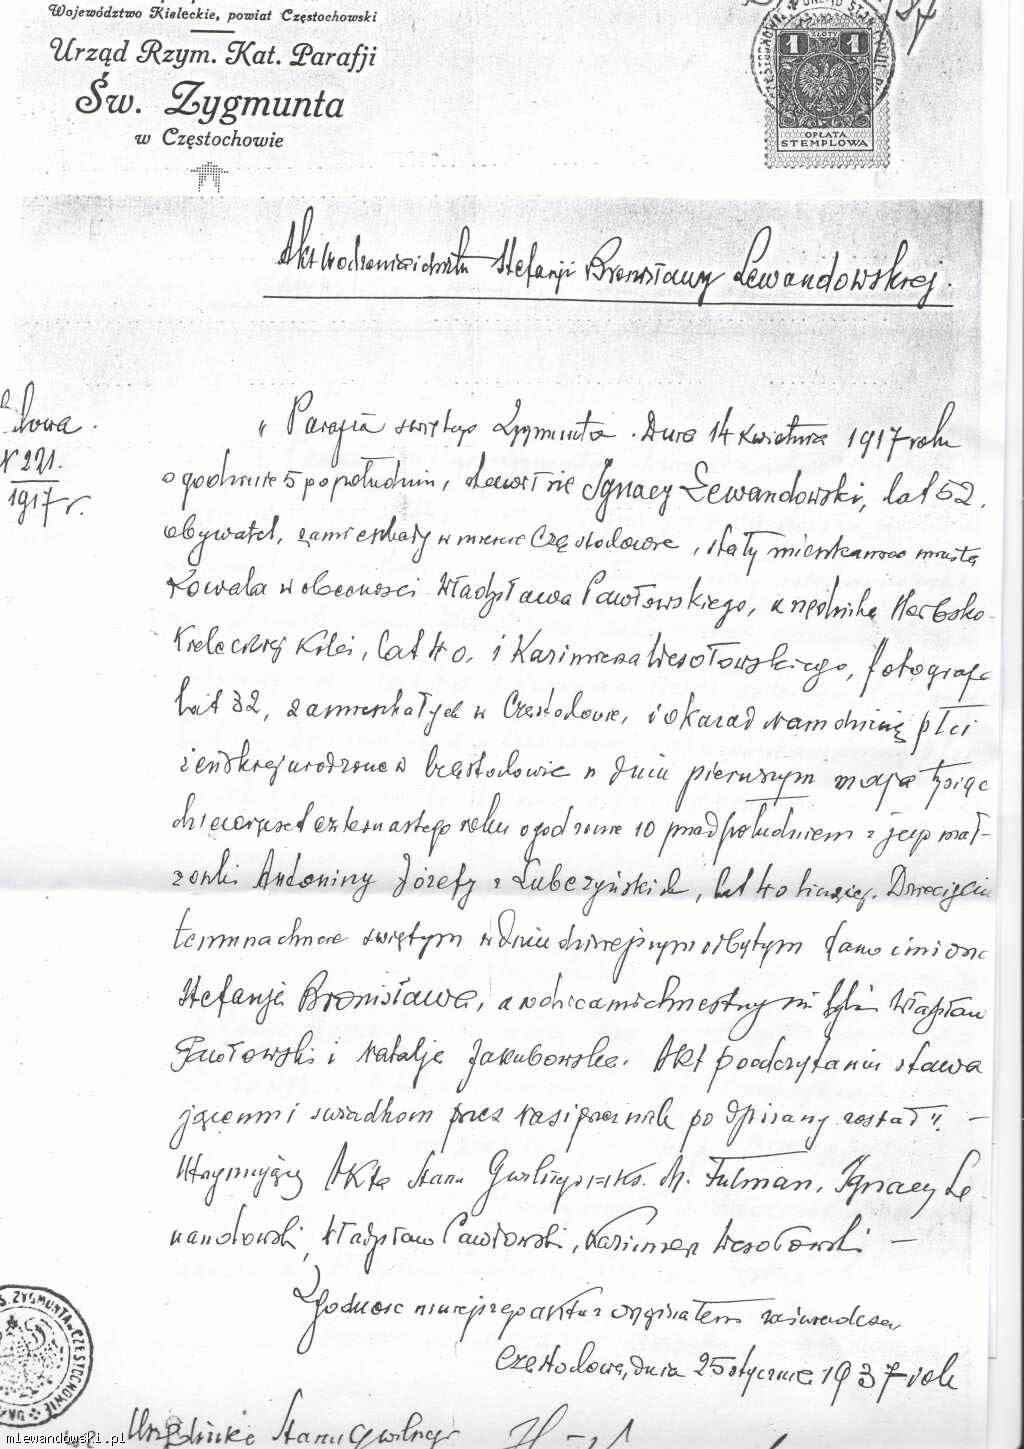 Województwo Kieleckie, powiat Częstochowski
Urząd Rzym. Kat. Parafji
Św. Zygmunta
w Częstochowie
1 ZŁOTY 1
OPŁATA
STEMPLOWA
Akt urodzenia i chrztu Stefanji Bronisławy Lewandowskiej.
N 221.
1917 r.
„ Parafia świętego Zygmunta. Dnia 14 kwietnia 1917 roku
o godzinie 5 popołudniu, stawił się Ignacy Lewandowski, lat 52,
obywatel, zamieszkały w mieście Częstochowie, stały mieszkaniec miasta
Kowala w obecności Władysława Pawłowskiego, urzędnika Herbsko-
Kieleckiej Kolei, lat 40, i Kazimierza Wesołowskiego, fotografa
lat 32, zamieszkałych w Częstochowie, i okazał nam dziecię płci
żeńskiej urodzone w Częstochowie w dniu pierwszym maja tysiąc
dziewięćset czternastego roku o godzinie 10 przed południem z jego mał-
żonki Antoniny Józefy z Lubczyńskich, lat 40 liczącej. Dziecięciu
temu na chrzcie świętym w dniu dzisiejszym odbytym dano imiona
Stefanja Bronisława, a rodzicami chrzestnymi byli Władysław
Pawłowski i Natalja Jakubowska. Akt po odczytaniu stawa
jącemu i świadkom przez nas i przez nich podpisany został”. —
Utrzymujący Akta Stanu Cywilnego ks. M. Fulman, Ignacy Le
wandowski, Władysław Pawłowski, Kazimierz Wesołowski —
Zgodność niniejszego aktu z oryginałem zaświadcza
Częstochowa, dnia 25 stycznia 1937 rok
Urzędnik Stanu Cywilnego
S. ZYGMUNTA w CZĘSTOCHOWIE
mlewandowski.pl